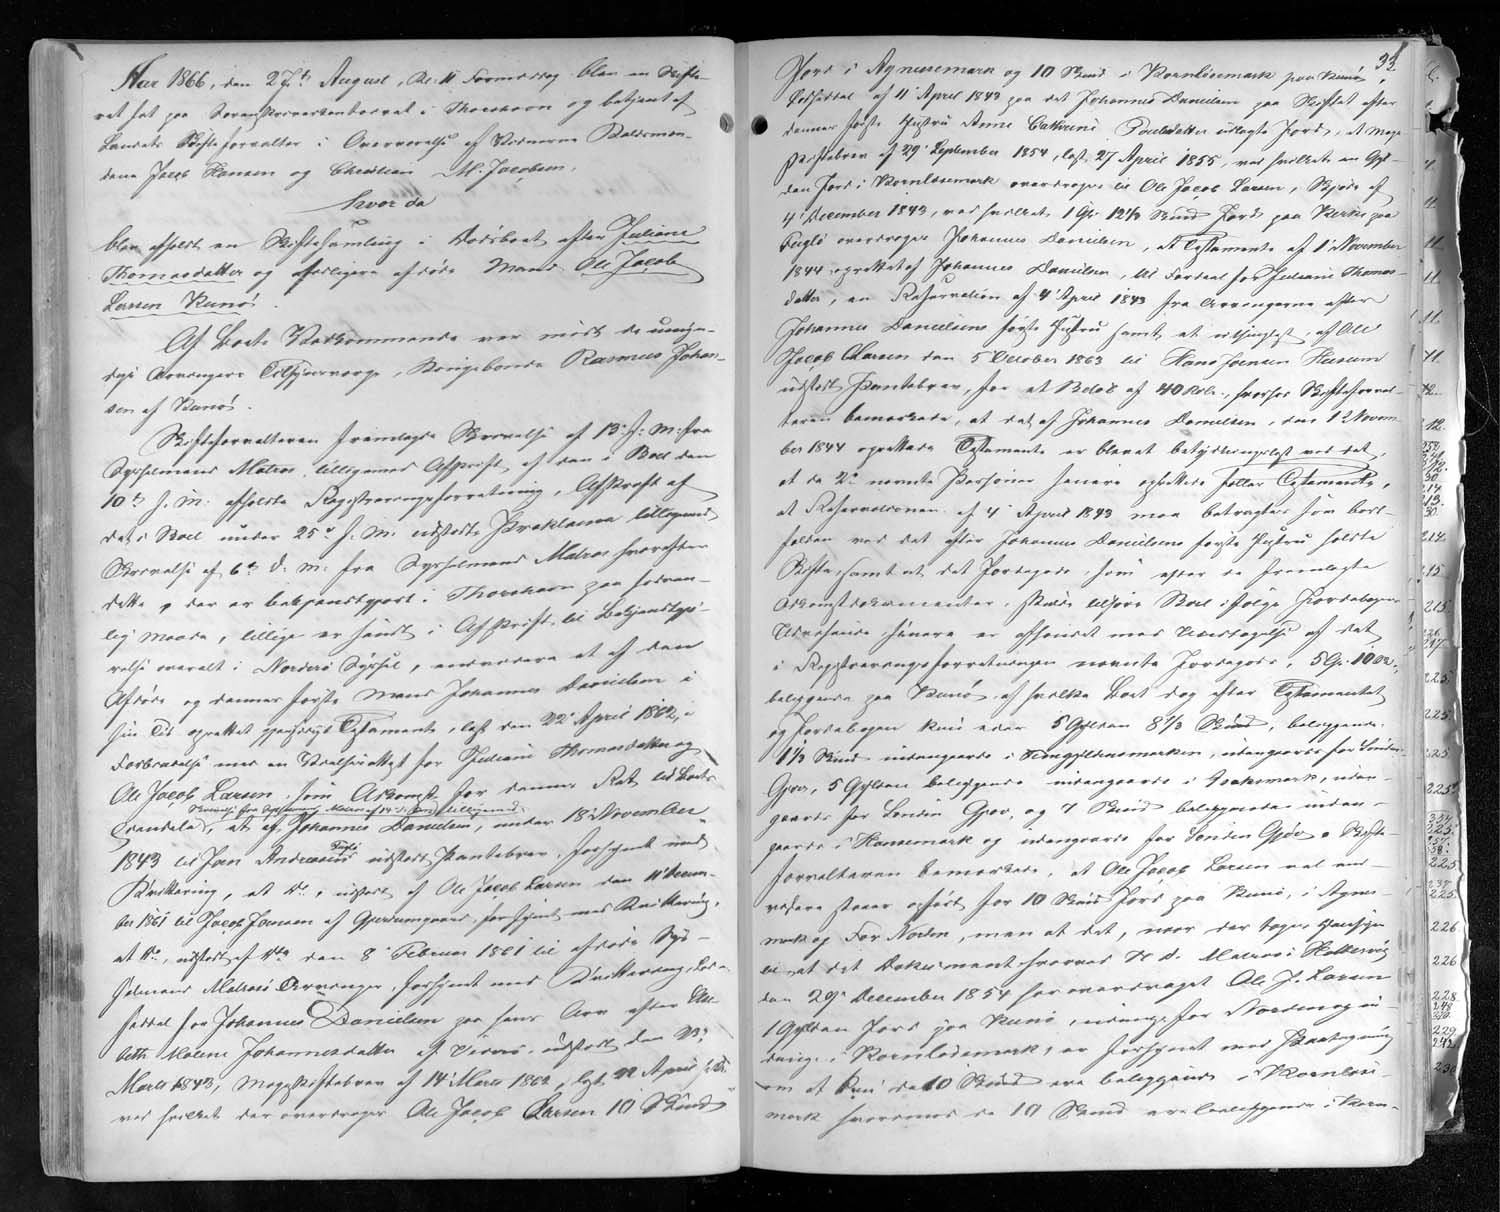 Aar 1866, den 27de August, Kl: 11 Formiddag blev en Skifte-
ret sat paa Sorenskriverkontoret i Thorshavn og betjent af
Landets Skifteforvalter i Overværelse af Vidnerne Raadsmæn-
dene Jacob Hansen og Christian M. Jacobsen,
hvor da
blev afholdt en Skiftesamling i Dødsboet efter Juliane
Thomasdatter og afdøde Mand Ole Jacob
Larsen Kunø.
Af Boets Vedkommende var mødt de umyn-
dige Arvingers Tilsynsværge, Kongsbonde Rasmus Johan-
sen af Kunø.
Skifteforvalteren fremlagde Skrivelse af 13 f: M: fra
Sysselmand Matras tilligemed Afskrift af den i Boet den
10de f. M: afholdte Registreringsforretning, Afskrift af
det i Boet under 25de f. M: udstedte Proklama tilligemed
Skrivelse af 6te d: M: fra Sysselmand Matras hvorefter
dette er bekjendtgjort i Thorshavn paa sædvan-
lig Maade, tillige er sendt i Afskrift til Bekjendtgjø-
relse overalt i Norderø Syssel, endvidere et af den
Afdøde og dennes første Mand Johannes Danielsen i
sin Tid oprettet gjensidigt Testamente, læst den 22 April 1862, i
Forbindelse med en for Juliane Thomasdatter og
Ole Jacob Larsen som Adkomst for dennes Ret til Boets
Skrivelse fra Sysselmand Matras af 14 tilligemed
, et af Johannes Danielsen, under 18 November
1843 til Jon Andreasen Fuglø udstedt Pantebrev, forsynet med
Kvittering, et do, udstedt af Ole Jacob Larsen den 11 Decem-
ber 1861 til Jacob Joensen af , forsynet med Kvittering,
et do, udstedt af do den 8 Februar 1861 til afdøde Sys-
selmand Matrases Arvinger, forsynet med Kvittering, Lod-
seddel for Johannes Danielsen paa hans Arv efter Else-
beth Malene Johannesdatter af Viderø, udstedt den
Marts 1843, Mageskiftebrev af 14 Marts 1862, læst 22 April
ved hvilket der overdrages Ole Jacob Larsen 10 Skind
Jord i Agnusemark og 10 Skind i Kornløsemark paa Kunø,
Lodseddel af 11 April 1843 paa det Johannes Danielsen paa Skiftet efter
dennes første Hustru Anne Cathrine Poulsdatter udlagte Jord, et Mage-
skiftebrev af 29 September 1854, læst 27 April 1855, ved hvilket en Gyl-
den Jord i Kornløsemark overdrages til Ole Jacob Larsen, Skjøde af
4 December 1843, ved hvilket 1 Gl. 12½ Skind Jord paa Kirke paa
Fuglø overdrages Johannes Danielsen, et Testamente af 1 November
1844 oprettet af Johannes Danielsen, til Fordeel for Juliane Thomas-
datter, en Reservation af 4 April 1843 fra Arvingerne efter
Johannes Danielsens første Hustru samt et utinglyst, af Ole
Jacob Larsen den 5 October 1863 til Hans Joensen Husum
udstedt Pantebrev, for et Beløb af 40 Rdl., hvorhos Skifteforval-
teren bemærkede, at det af Johannes Danielsen, den 12 Novem-
ber 1844 oprettede Testamente er blevet betydningsløst ved det,
at de 2de nævnte Personer senere oprettede fælles Testamente,
at Reservationen af 4 April 1843 maa betragtes som bort-
falden ved det efter Johannes Danielsens første Hustru holdte
Skifte, samt at det Jordegods, som efter de fremlagte
Adkomstdokumenter skulde tilhøre Boet ifølge Jordebogens
Udvisende senere er afhændet med Undtagelse af det
i Registreringsforretningen nævnte Jordegods, 5 Gl. 10 Sk.
beliggende paa Kunø, af hvilke Boet dog efter Testamentet
og Jordebogen kun eier 5 Gylden 8½ Skind, beliggende
1½ Skind indengaards i Femgyldensmarken, udengaards for Sønden
Gjøv, 5 Gylden beliggende indengaards i Isaksmark, uden-
gaards for Sønden Gjøv, og 7 Skind beliggende inden-
gaards i Hansemark og udengaards for Sønden Gjøv. Skifte-
forvalteren bemærkede, at Ole Jacob Larsen vel end-
videre staaer opført for 10 Skind Jord paa Kunø, i Agnus-
mark og For Norden, men at det, naar der tages Hensyn
til at det Dokument hvorved H. D. Matras i Hattervig
den 29 December 1854 har overdraget Ole J. Larsen
1 Gylden Jord paa Kunø, udeng. for Norden og in-
deng. i Kornløsemark, er forsynet med Paategning
om at kun de 10 Skind ere beliggende i Kornløse-
mark hvorimod de 10 Skind ere beliggende i Korn-